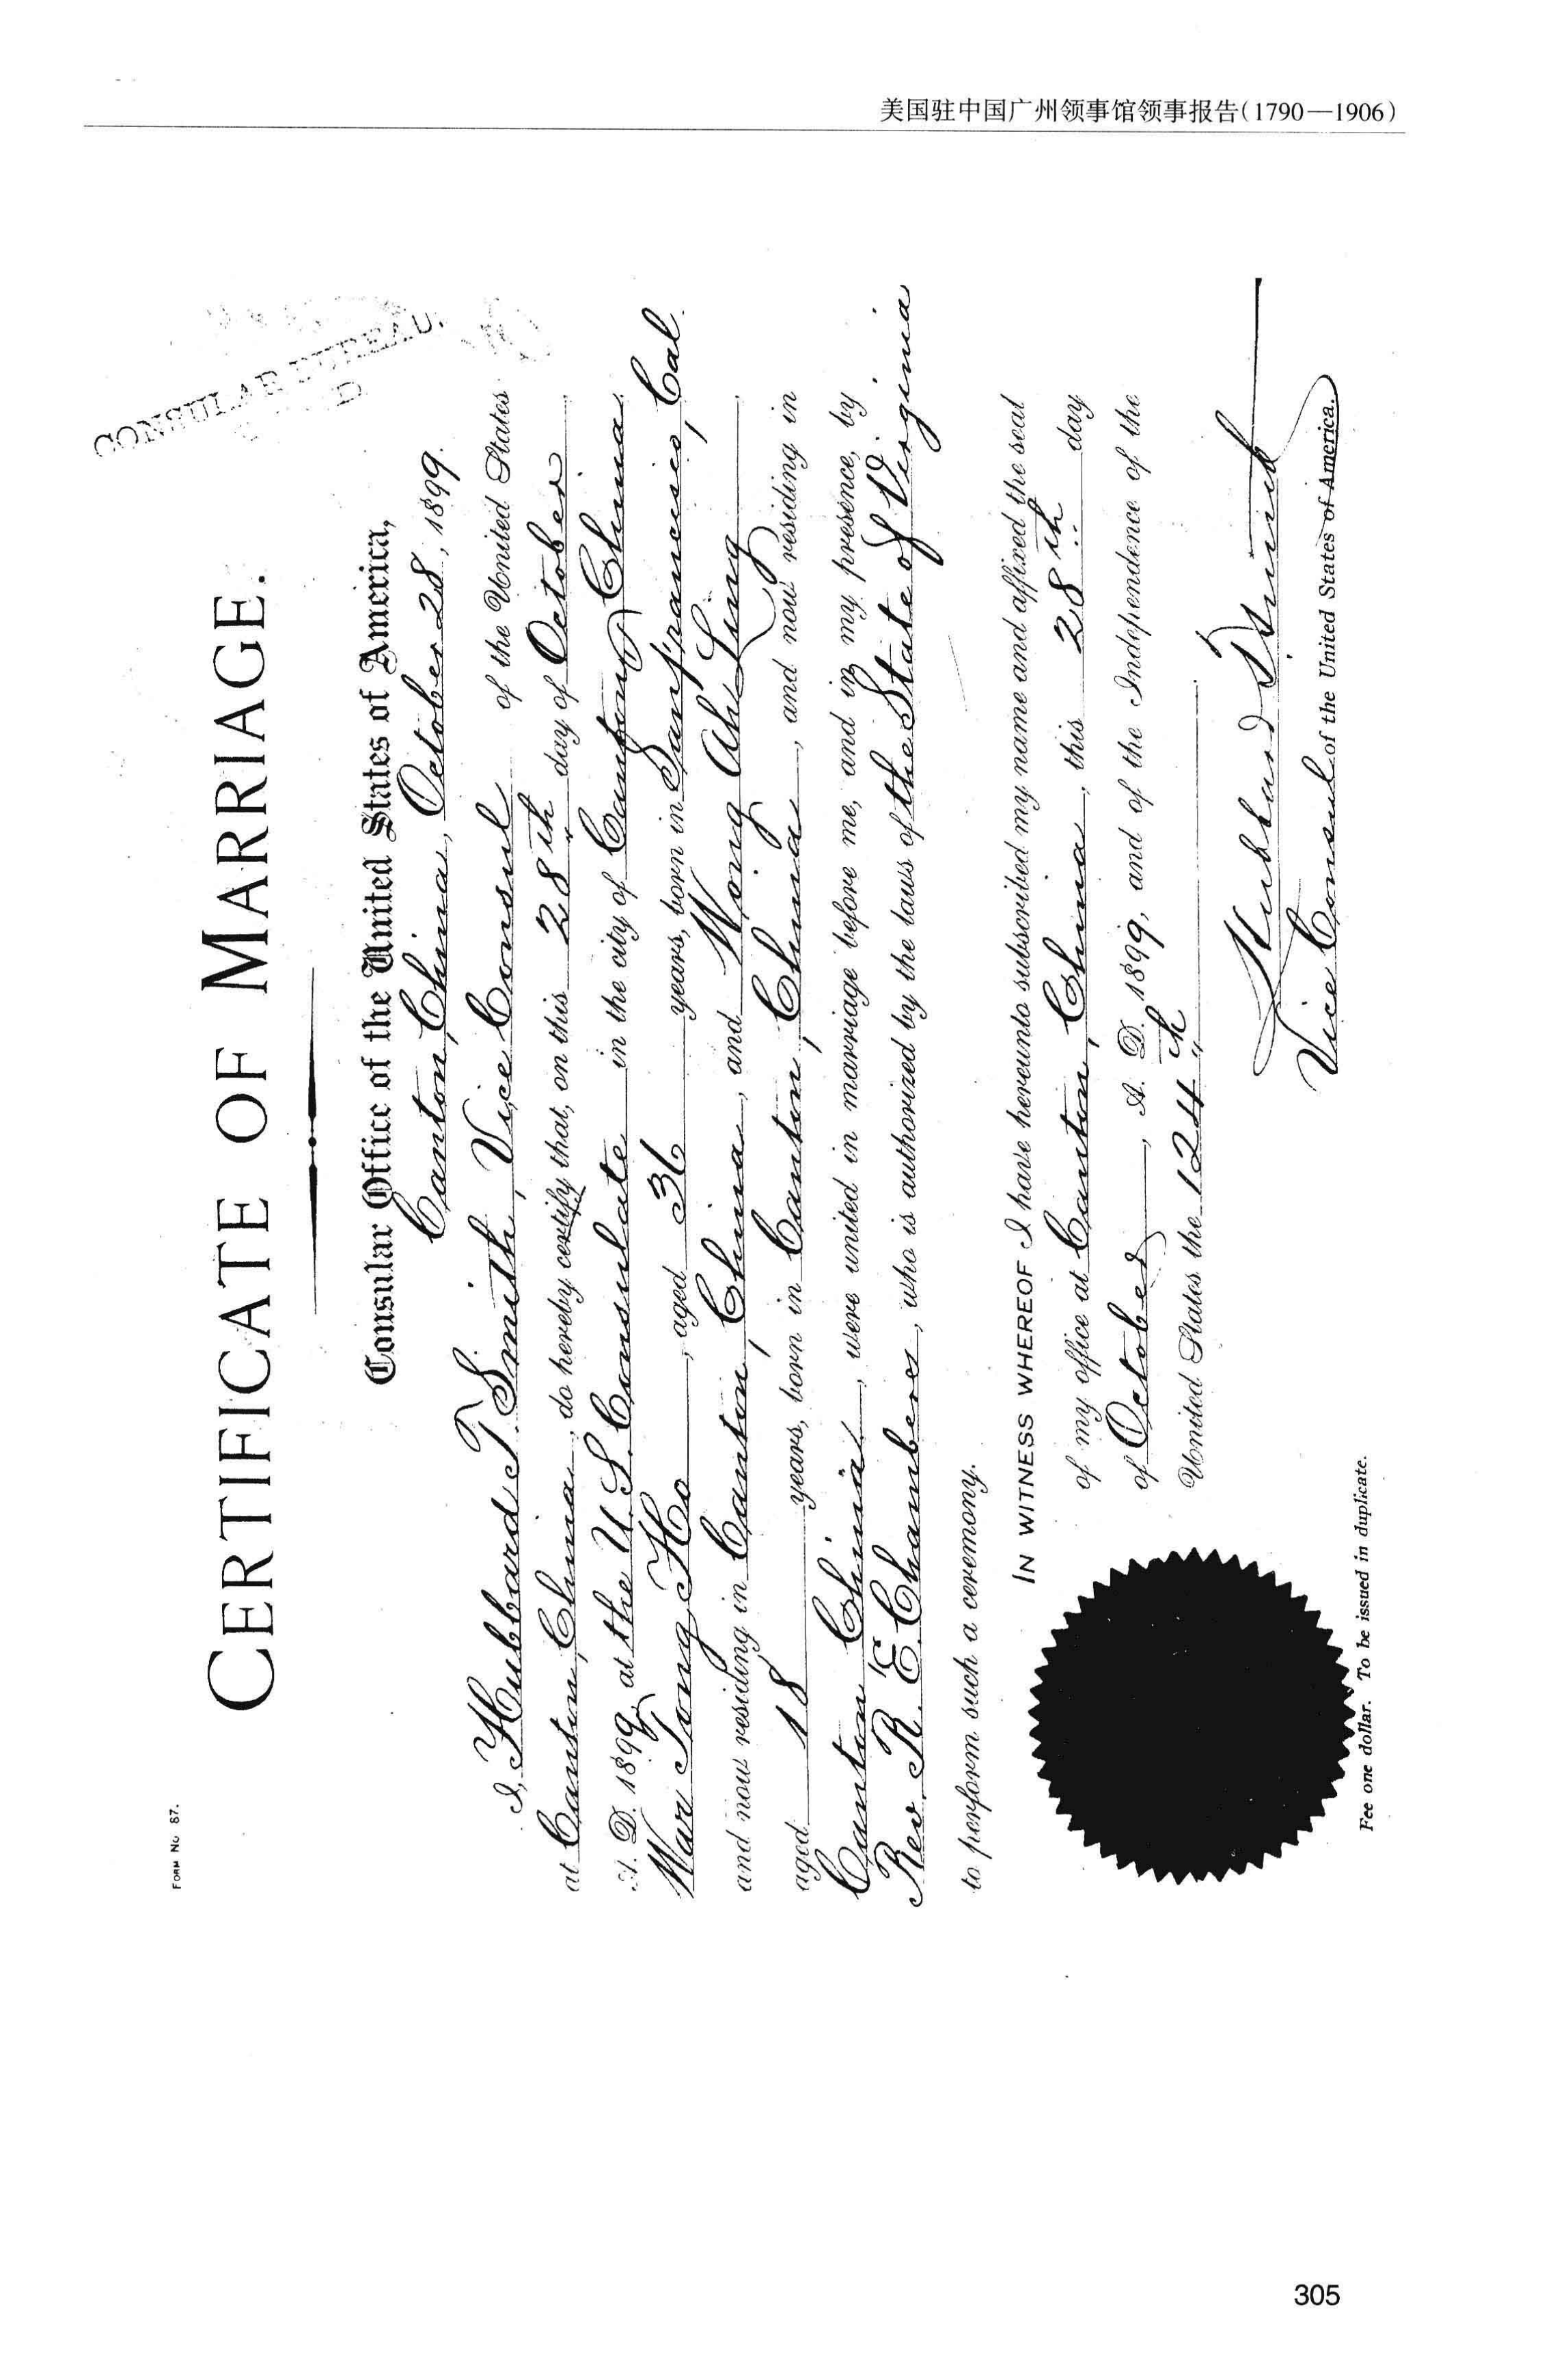 美国驻中国广州领事馆领事报告(1790—1906)
FORM No 87.
CONSULAR BUREAU.
CERTIFICATE OF MARRIAGE.
Consular Office of the United States of America,
Canton, China, October 28, 1899.
I, Hubbard T. Smith, Vice Consul of the United States
at Canton, China, do hereby certify that, on this 28th day of October
A. D. 1899, at the U.S. Consulate in the city of Canton, China,
War Tong Ho, aged 36 years, born in San Francisco, Cal.
and now residing in Canton, China, and Wong Ah Sung,
aged 18 years, born in Canton, China, and now residing in
Canton China, were united in marriage before me, and in my presence, by
Rev. R. E. Chambers, who is authorized by the laws of the State of Virginia
to perform such a ceremony.
IN WITNESS WHEREOF I have hereunto subscribed my name and affixed the seal
of my office at Canton, China, this 28th day
of October, A. D. 1899, and of the Independence of the
United States the 124th.
Hubbard T. Smith
Vice Consul of the United States of America.
Fee one dollar. To be issued in duplicate.
305